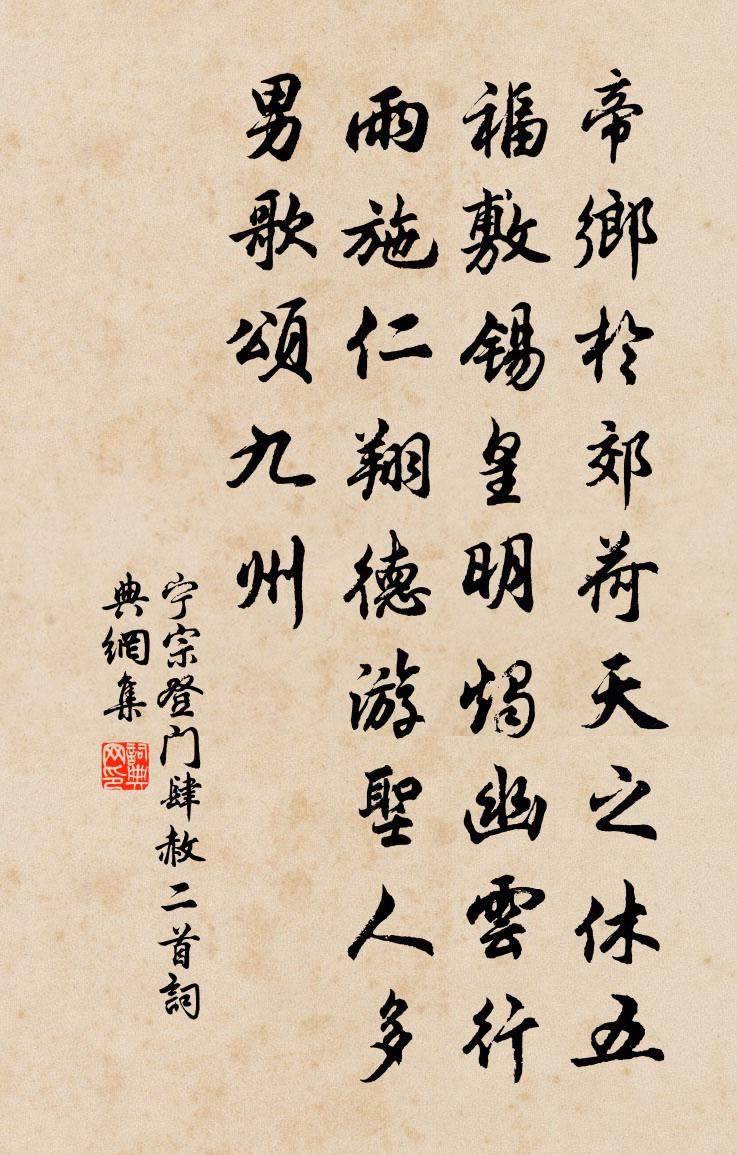 帝鄉於郊荷天之休五
福敷錫皇明燭幽雲行
雨施仁翔德游聖人多
男歌頌九州
宁宗登门肆赦二首詞
典網集
詞典
网印